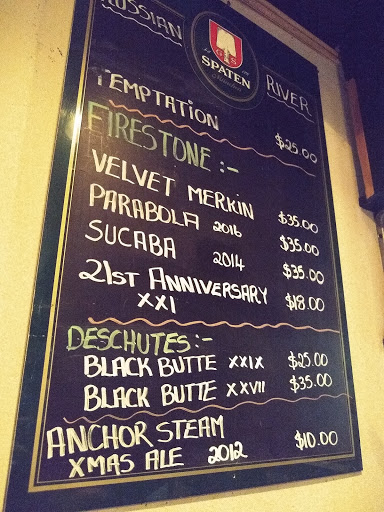 RUSSIAN RIVER
G S
SPATEN
TEMPTATION $25.00
FIRESTONE :-
VELVET MERKIN $35.00
PARABOLA 2016 $35.00
SUCABA 2014 $35.00
21st ANNIVERSARY $18.00
XXI
DESCHUTES:-
BLACK BUTTE XXIX $25.00
BLACK BUTTE XXVII $35.00
ANCHOR STEAM
XMAS ALE 2012 $10.00